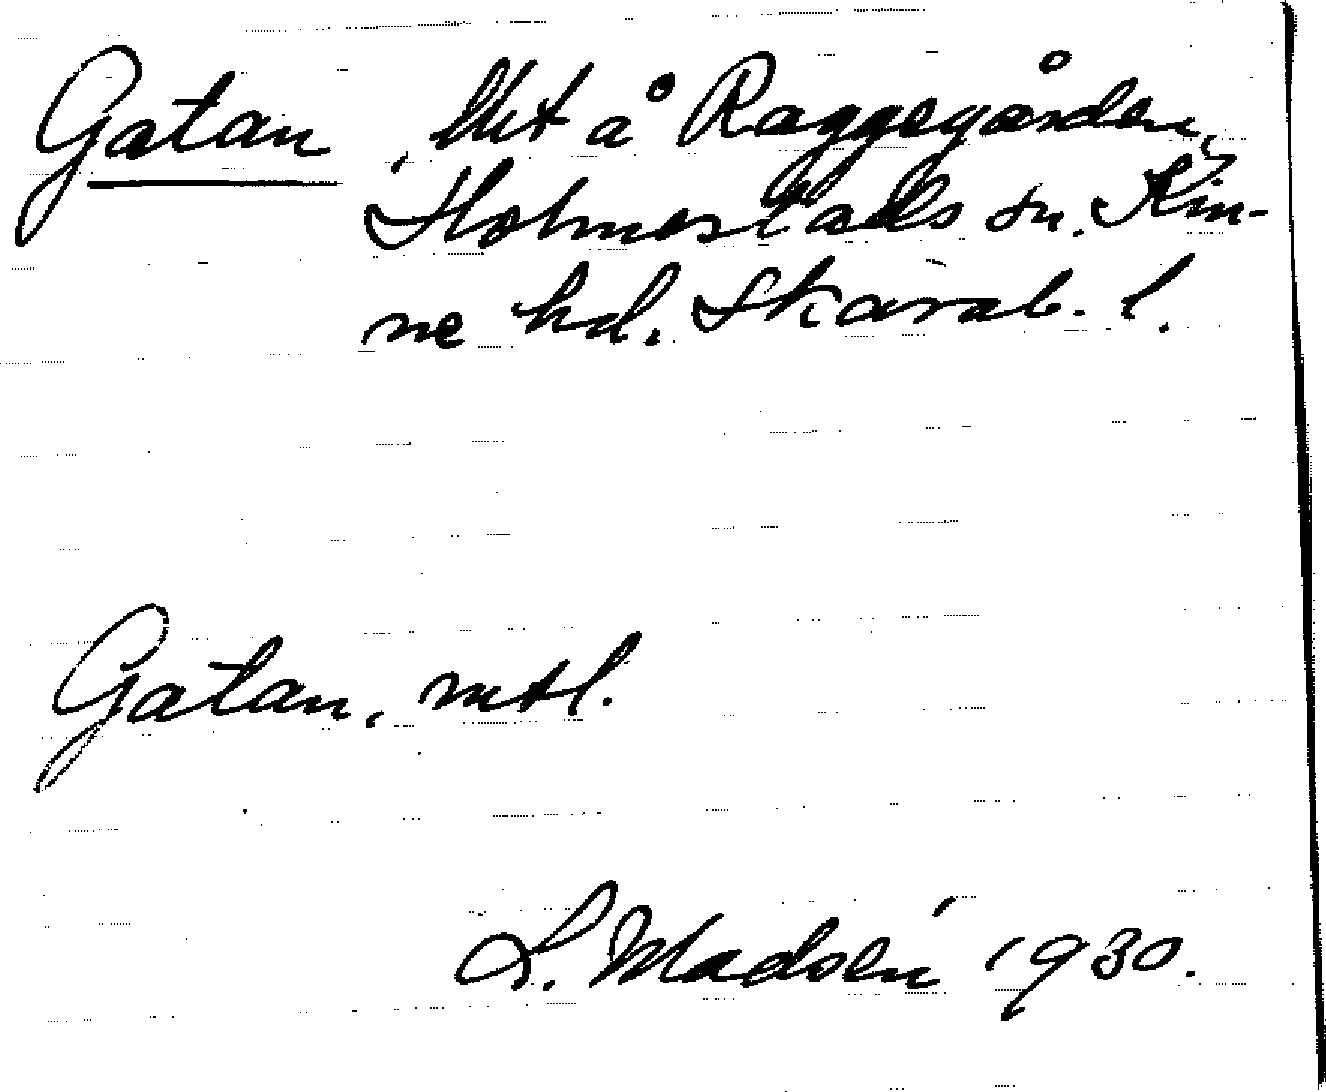 Gatan, lllet å Raggegården,
Holmestads sn. Kin-
ne hd. Skarab. l.
Gatan, mtl.
L. Madsén 1930.